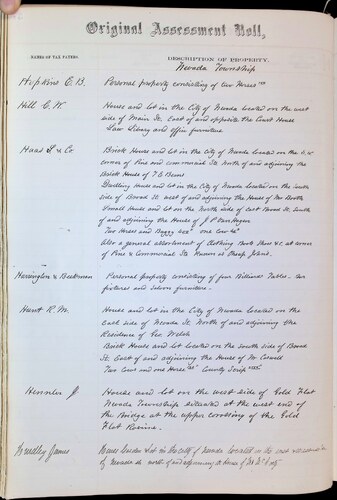 Original Assessment Roll,
NAMES OF TAX PAYERS. DESCRIPTION OF PROPERTY.
Nevada Township
Hopkins C. B. Personal property consisting of two Horses
Hill C. W. House and lot in the City of Nevada located on the west
side of Main St. East of and opposite the Court House
Law Library and office furniture
Haas S & Co Brick House and lot in the City of Nevada located on the
corner of Pine and commercial Sts North of and adjoining the
Brick House of
Dwelling House and lot in the City of Nevada located on the South
side of Broad St. west of and adjoining the House of
Small House and lot on the South side of East Broad St. South
of and adjoining the House of J. P. Van Hagen
Two Horses and Buggy one Cow
Also a general assortment of Clothing Boots Shoes &c at corner
of Pine & Commercial Sts Known as Cheap Johns.
Harrington & Beekman Personal property consisting of four Billiard Tables. Bar
fixtures and Saloon furniture.
Hunt R. M. House and lot in the City of Nevada located on the
East side of Nevada St. North of and adjoining the
Residence of Geo. Welsh
Brick House and lot located on the South side of Broad
St. East of and adjoining the House of Mr
Two Cows and one Horse County Scrip
Hensler J. House and lot on the west side of Gold Flat
Nevada Township situated at the west end of
the Bridge at the upper crossing of the Gold
Flat Ravine.
Bradley James House & lot in the city of Nevada located on the
by Nevada St. north of and adjoining the House of